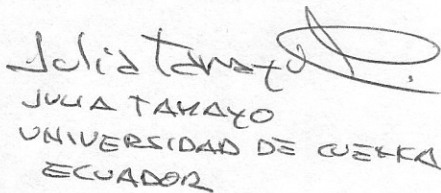 Julia Tamayo
JULIA TAMAYO
UNIVERSIDAD DE CUENCA
ECUADOR